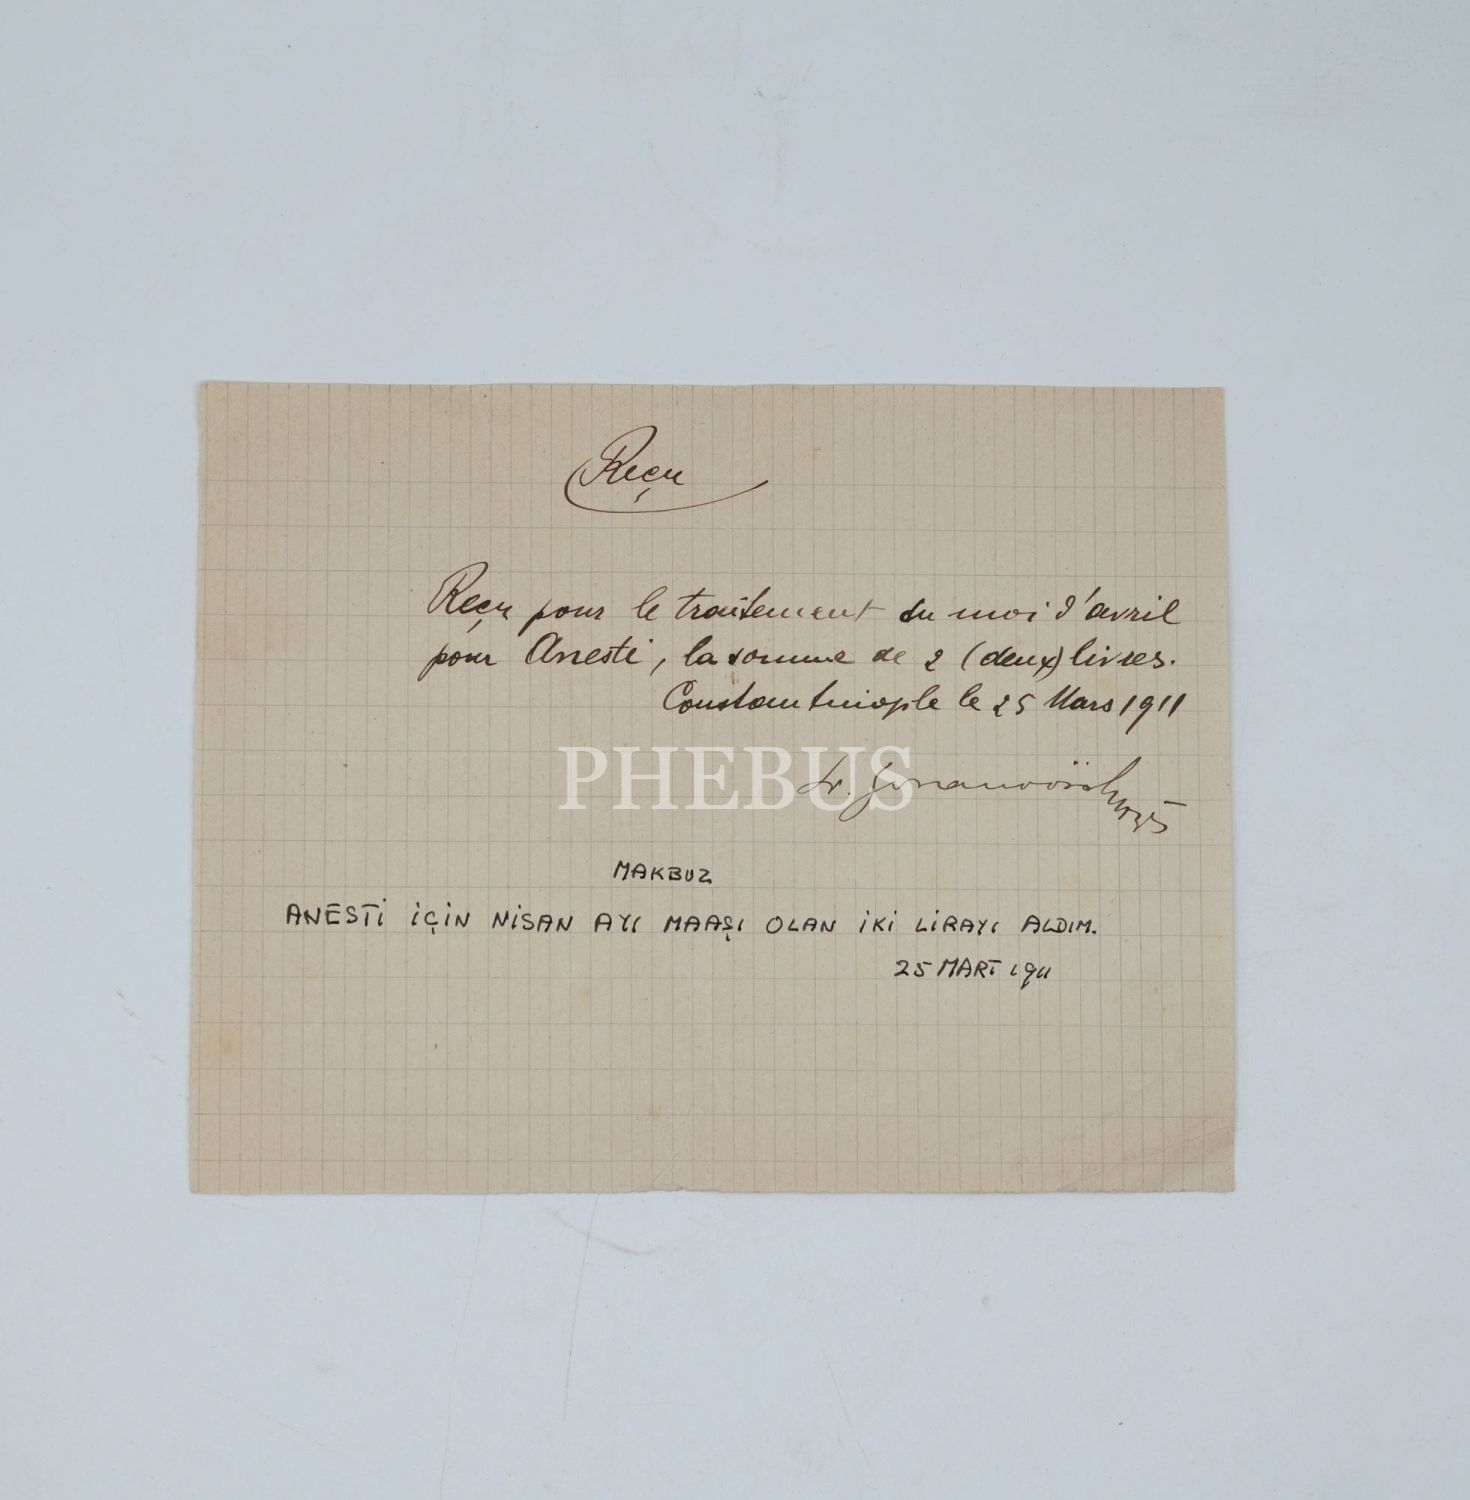 Reçu
Reçu pour le traitement du moi d'avril
pour Anesti, la somme de 2 (deux) livres.
Constantinople le 25 Mars 1911
PHEBUS
MAKBUZ
ANESTİ İÇİN NİSAN AYI MAAŞI OLAN İKİ LİRAYI ALDIM.
25 MART 1911